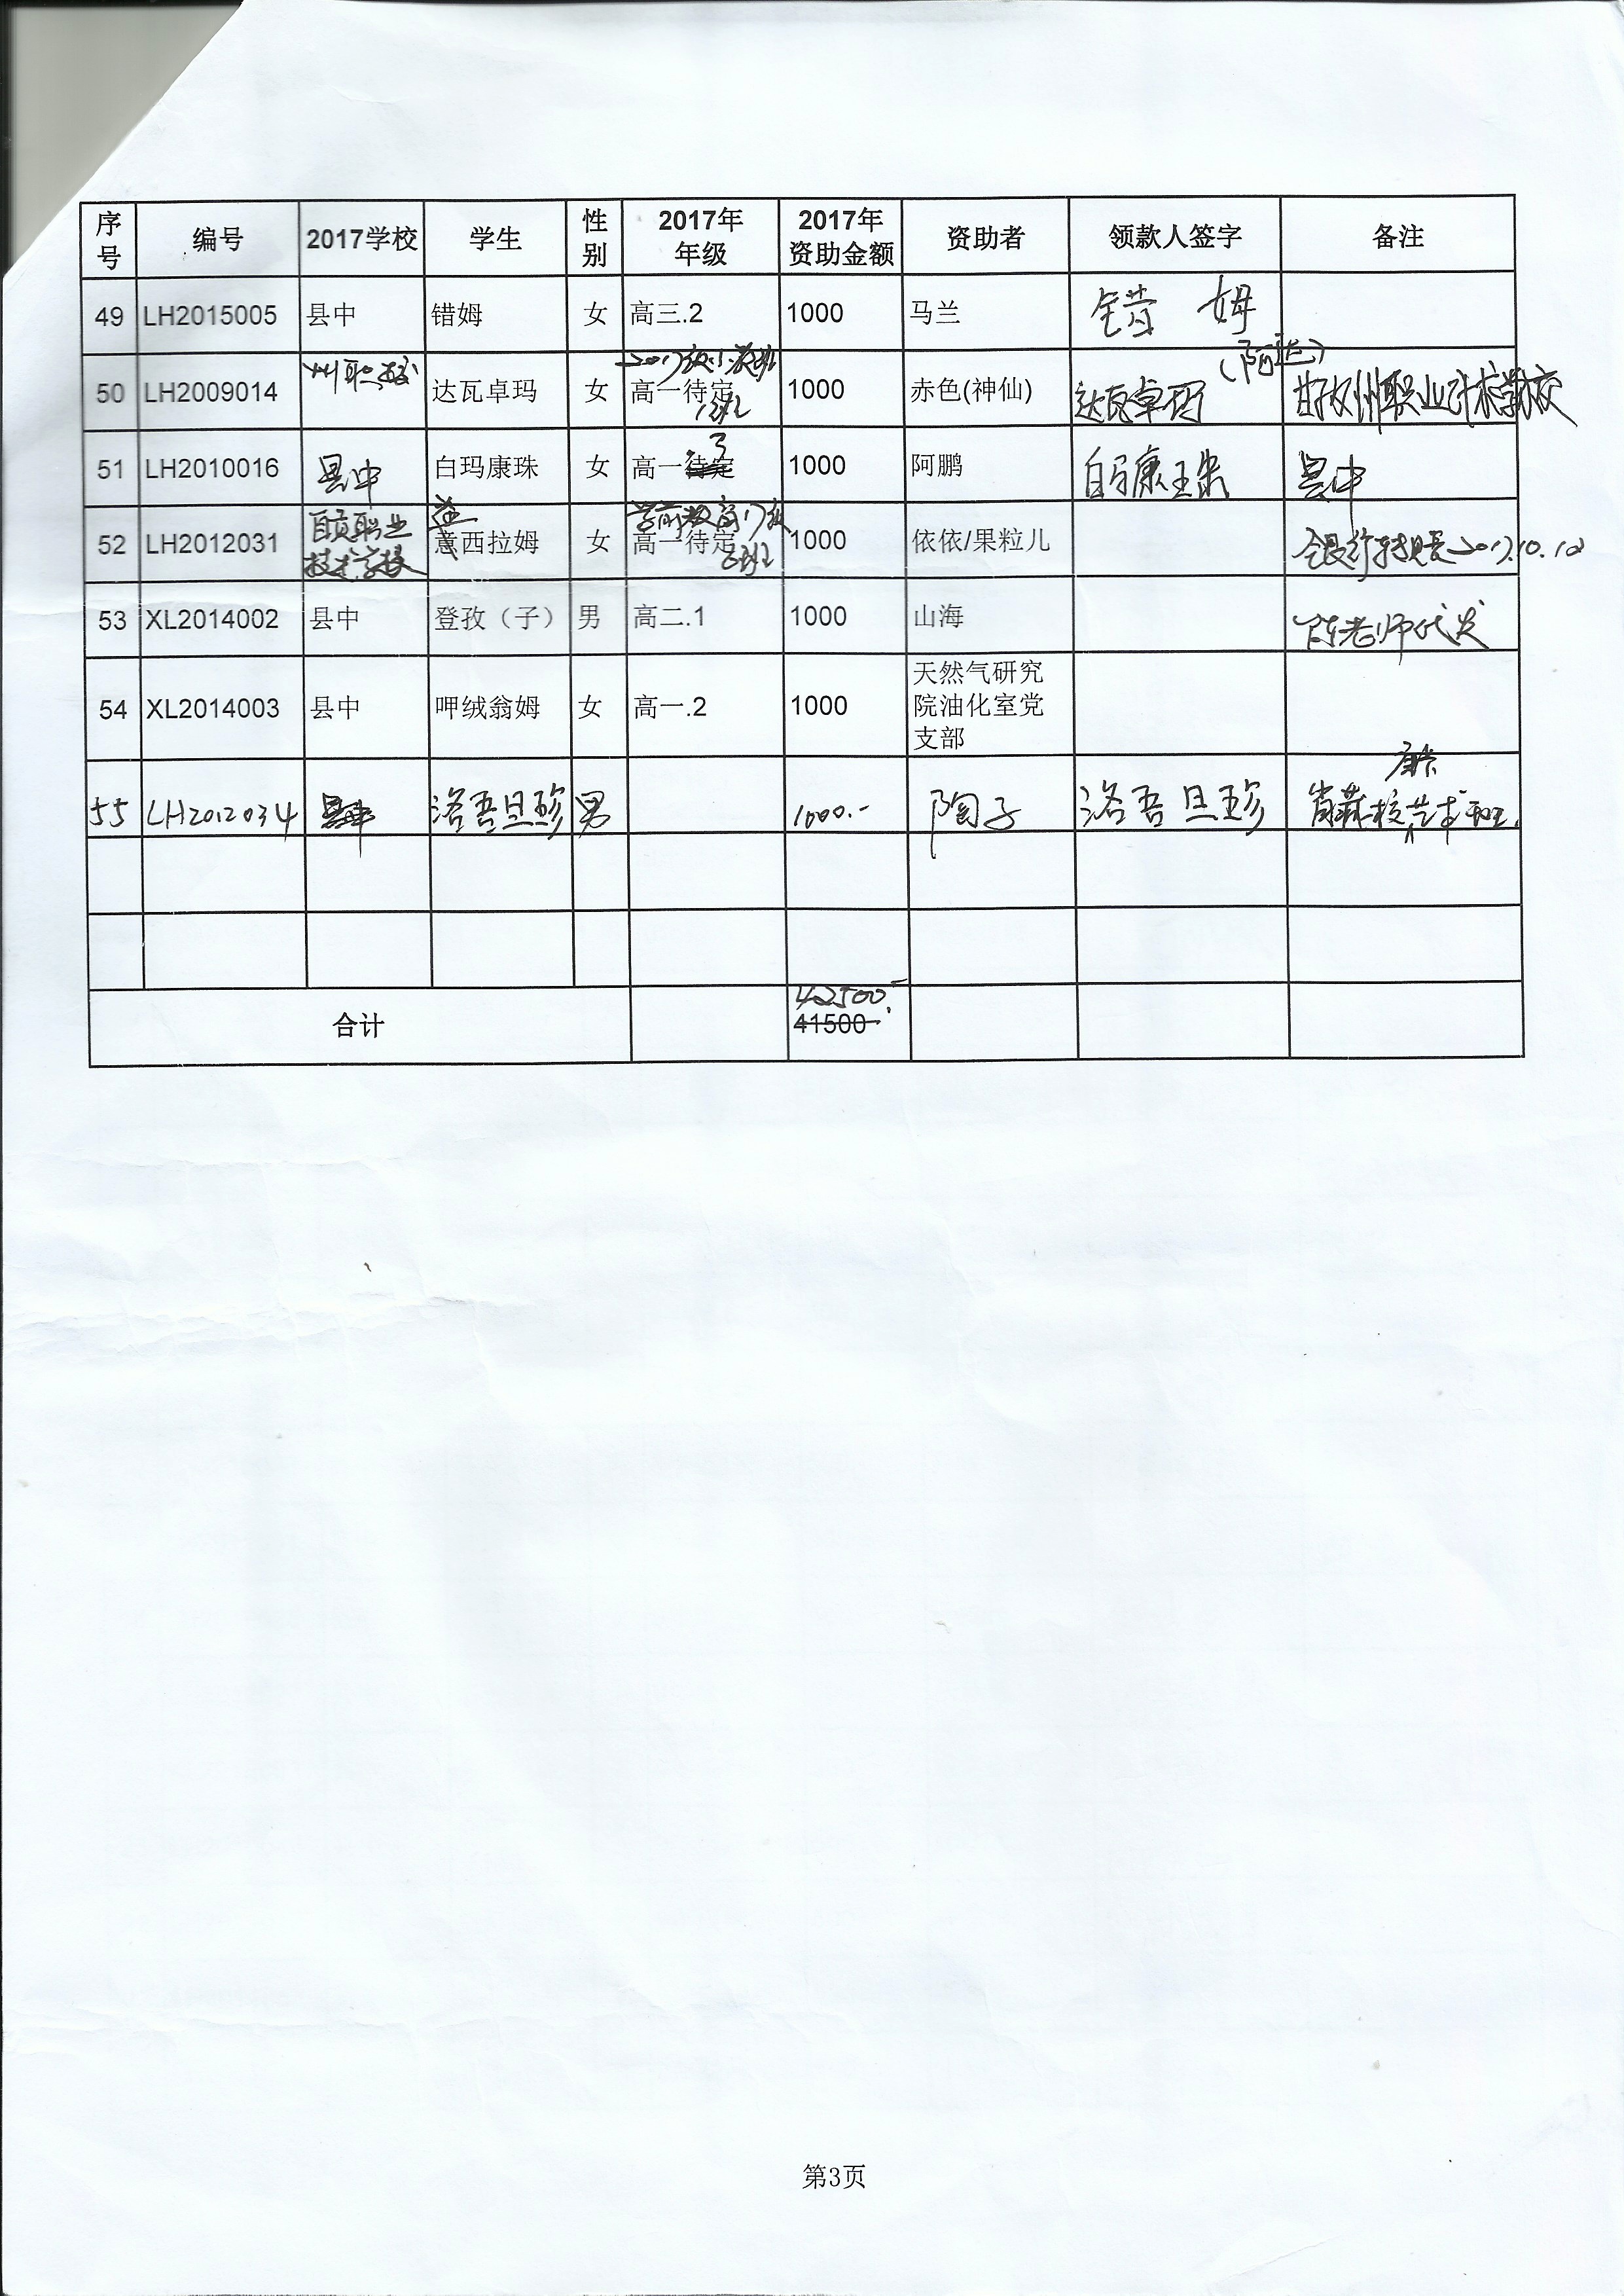 序号 编号 2017学校 学生 性别 2017年年级 2017年资助金额 资助者 领款人签字 备注
49 LH2015005 县中 错姆 女 高三.2 1000 马兰 错姆
50 LH2009014 州职校 达瓦卓玛 女 2017级小教班 高一待定 1000 赤色(神仙) 达瓦卓玛 甘孜州职业技术学校
51 LH2010016 县中 白玛康珠 女 高一待定 3 1000 阿鹏 白马康珠 县中
52 LH2012031 自贡职业技术学校 意西拉姆 女 学前教育17级6班 高一待定 1000 依依/果粒儿 银行转账2017.10.10
53 XL2014002 县中 登孜（子） 男 高二.1 1000 山海 陈老师代发
54 XL2014003 县中 呷绒翁姆 女 高一.2 1000 天然气研究院油化室党支部
55 LH2012034 县中 洛吾旦珍 男 1000.- 陶子 洛吾旦珍 艺术班
合计 42500.- 41500
第3页